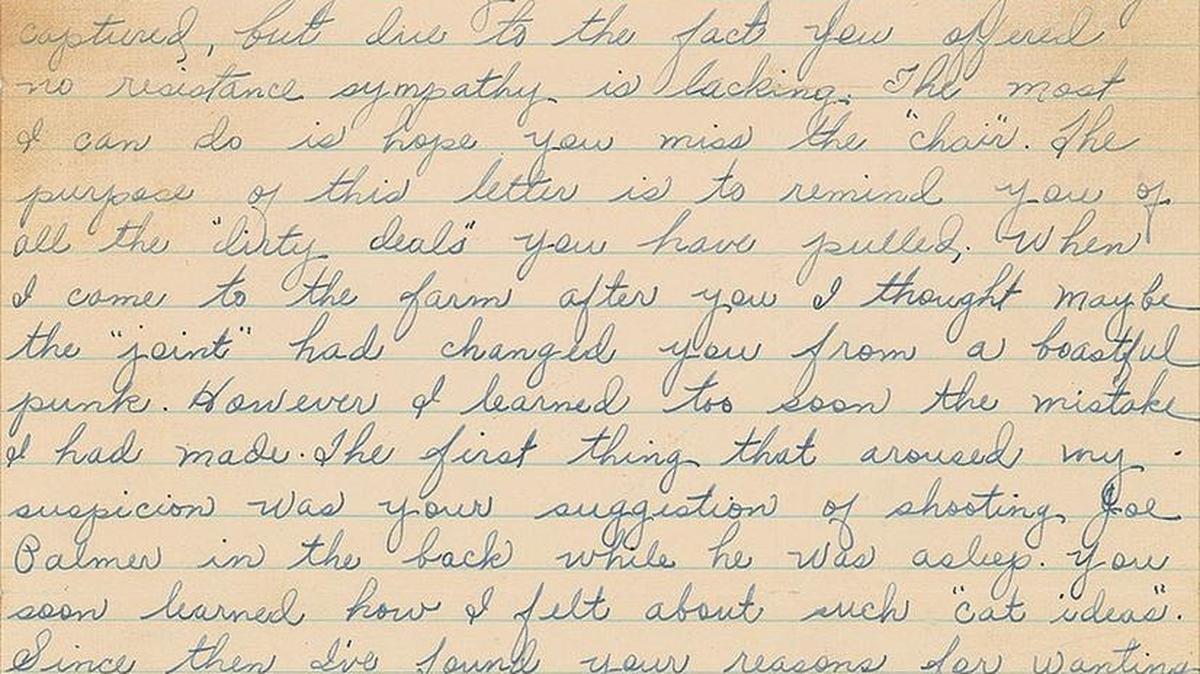 captured, but due to the fact you offered
no resistance sympathy is lacking. The most
I can do is hope you miss the "chair". The
purpose of this letter is to remind you of
all the "dirty deals" you have pulled. When
I came to the farm after you I thought maybe
the "joint" had changed you from a boastful
punk. However I learned too soon the mistake
I had made. The first thing that aroused my
suspicion was your suggestion of shooting Joe
Palmer in the back while he was asleep. You
soon learned how I felt about such "cat ideas".
Since then I've found your reasons for wanting